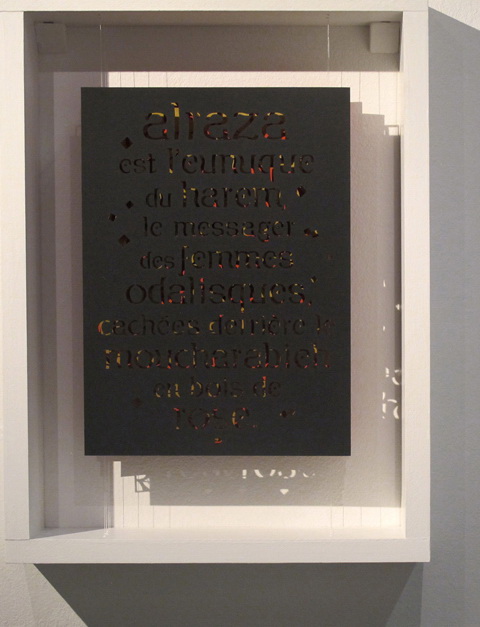 alraza
est l'eunuque
du harem,
le messager
des femmes
odalisques,
cachées derrière le
moucharabieh
en bois de
rose.